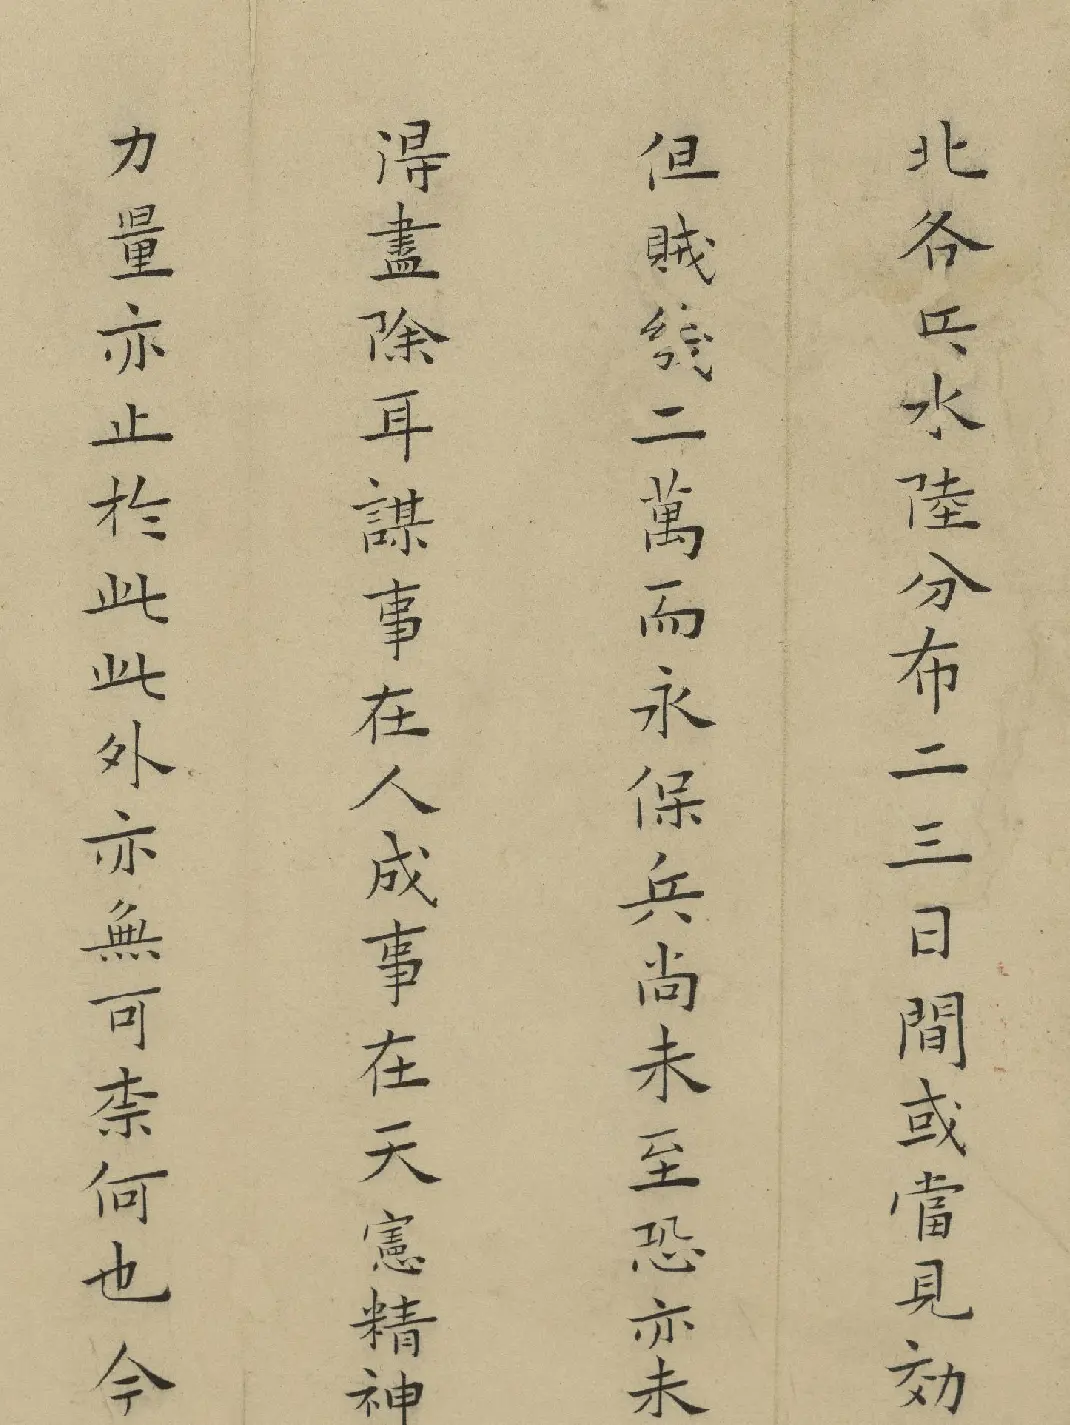 北各兵水陸分布二三日間或當見効
但賊幾二萬而永保兵尚未至恐亦未
得盡除耳謀事在人成事在天憲精神
力量亦止於此此外亦無可柰何也今